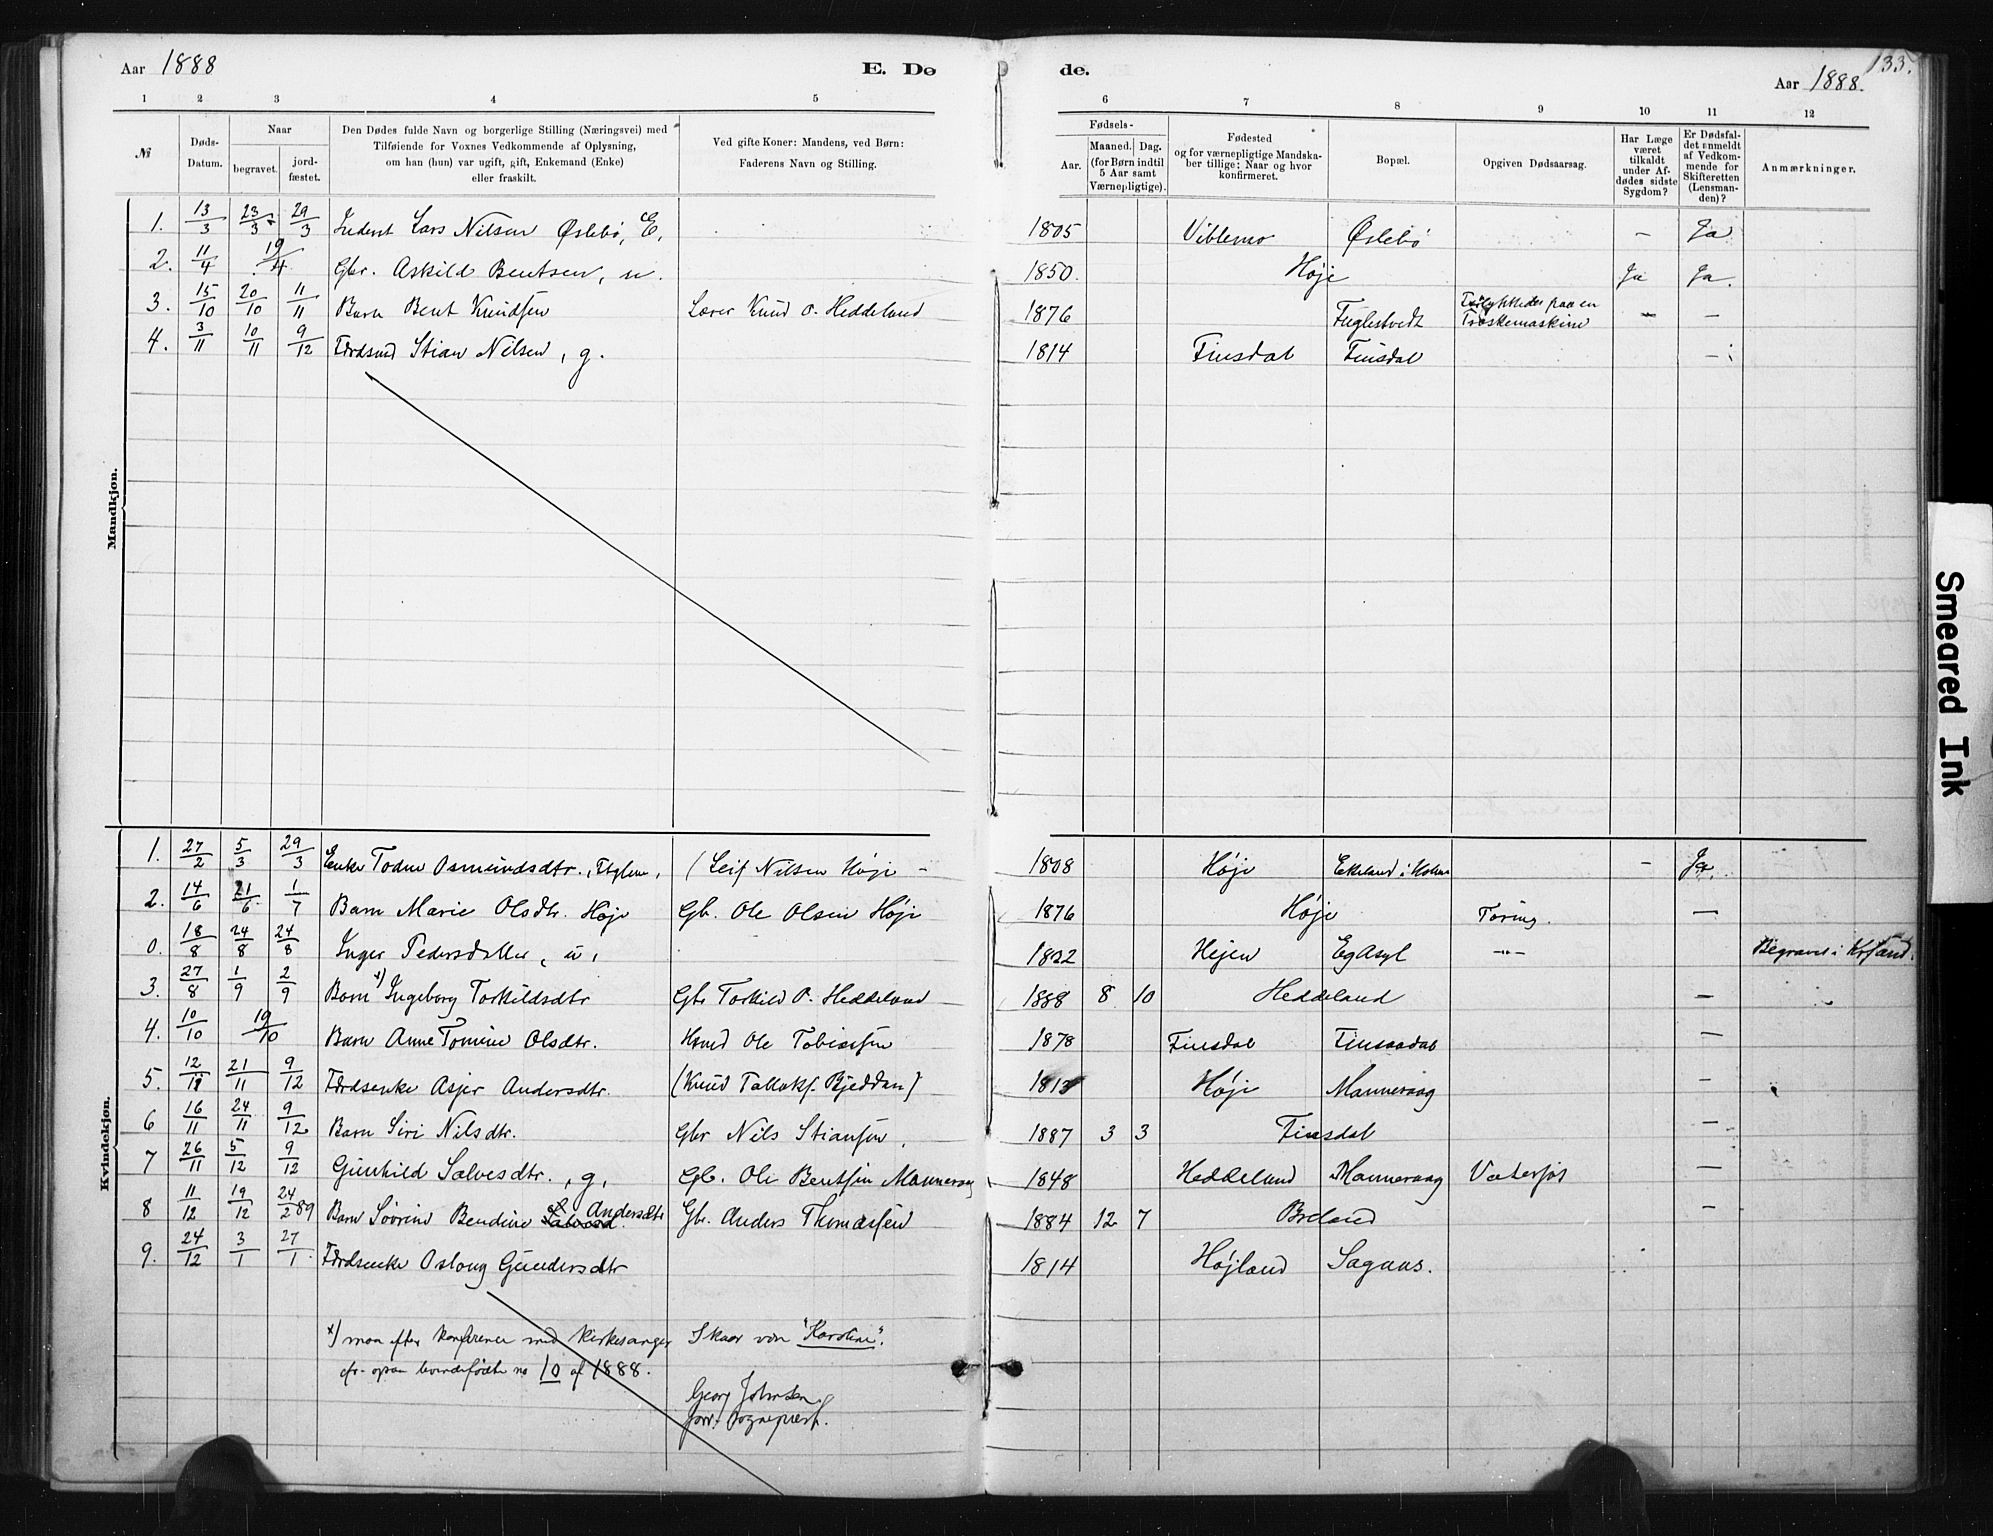 Aar 1888
E. Dø
de.
133.
Aar 1888.
1 2 3 4 5 6 7 8 9 10 11 12
№
Døds-
Datum.
Naar
begravet.
jord-
fæstet.
Den Dødes fulde Navn og borgerlige Stilling (Næringsvei) med
Tilføiende for Voxnes Vedkommende af Oplysning,
om han (hun) var ugift, gift, Enkemand (Enke)
eller fraskilt.
Ved gifte Koner: Mandens, ved Børn:
Faderens Navn og Stilling.
Fødsels-
Aar.
Maaned. Dag.
(for Børn indtil
5 Aar samt
Værnepligtige).
Fødested
og for værnepligtige Mandska-
ber tillige: Naar og hvor
konfirmeret.
Bopæl.
Opgiven Dødsaarsag.
Har Læge
været
tilkaldt
under Af-
dødes sidste
Sygdom?
Er Dødsfal-
det anmeldt
af Vedkom-
mende for
Skifteretten
(Lensman-
den)?
Anmærkninger.
Mandkjøn.
1. 13/3 23/3 29/3 Inderst Lars Nilsen Øslebø, E. 1805 Viblemo Øslebö - Ja
2. 11/4 19/4 Gbr. Askild Bentsen, u. 1850. Høje Ja Ja.
3. 15/10 20/10 11/11 Barn Bent Knudsen Lærer Knud O. Heddeland 1876 Fuglestvedt Forlykkedes paa en
Træskemaskine - -
4. 3/11 10/11 9/12 Fdrdsmd Stian Nilsen, g. 1814 Finsdal Finsdal -
Kvindekjøn.
1. 27/2 5/3 29/3 Enke Todne Osmundsdtr., (Leif Nilsen Höje - 1808 Høje Ekeland i - Ja.
2. 14/6 21/6 1/7 Barn Marie Olsdtr. Höje Gb. Ole Olsen Höje 1876 Høje Tæring. -
0. 18/8 24/8 24/8 Inger Pedersdatter, u, 1822 Hejen EgAsyl -"- Begravet i Krsand.
3. 27/8 1/9 2/9 Barn x) Ingeborg Torkildsdtr Gbr Torkild O. Heddeland 1888 8 10 Heddeland -
4. 10/10 19/10 Barn Anne Tomine Olsdtr. Hsmd Ole Tobiassen 1878 Finsdal Finsaadal -
5. 12/11 21/11 9/12 Fdrdsenke Asjer Andersdtr. (Knud Tallaks. Bjeddan) 1813 Høje Manneraag -
6 16/11 24/11 9/12 Barn Siri Nilsdtr. Gbr Nils Stiansen. 1887 3 3 Finsdal -
7 26/11 5/12 9/12 Gunhild Salvesdtr., g, Gb. Ole Bentsen Manneraag 1848 Heddeland Manneraag Vatersot -
8 11/12 19/12 24/2 89 Barn Sövrine Bendine Andersdtr Gbr. Anders Thomassen 1884 12 7 Breland -
9. 24/12 3/1 27/1 Fdrdsenke Oslaug Gundersdtr 1814 Højland Sagaas.
x) maa efter konference med kirkesanger Skaar være "Karoline".
cfr. ogsaa kvindefødte no 10 af 1888.
Georg Johnsen.
Sogneprest.
Smeared Ink